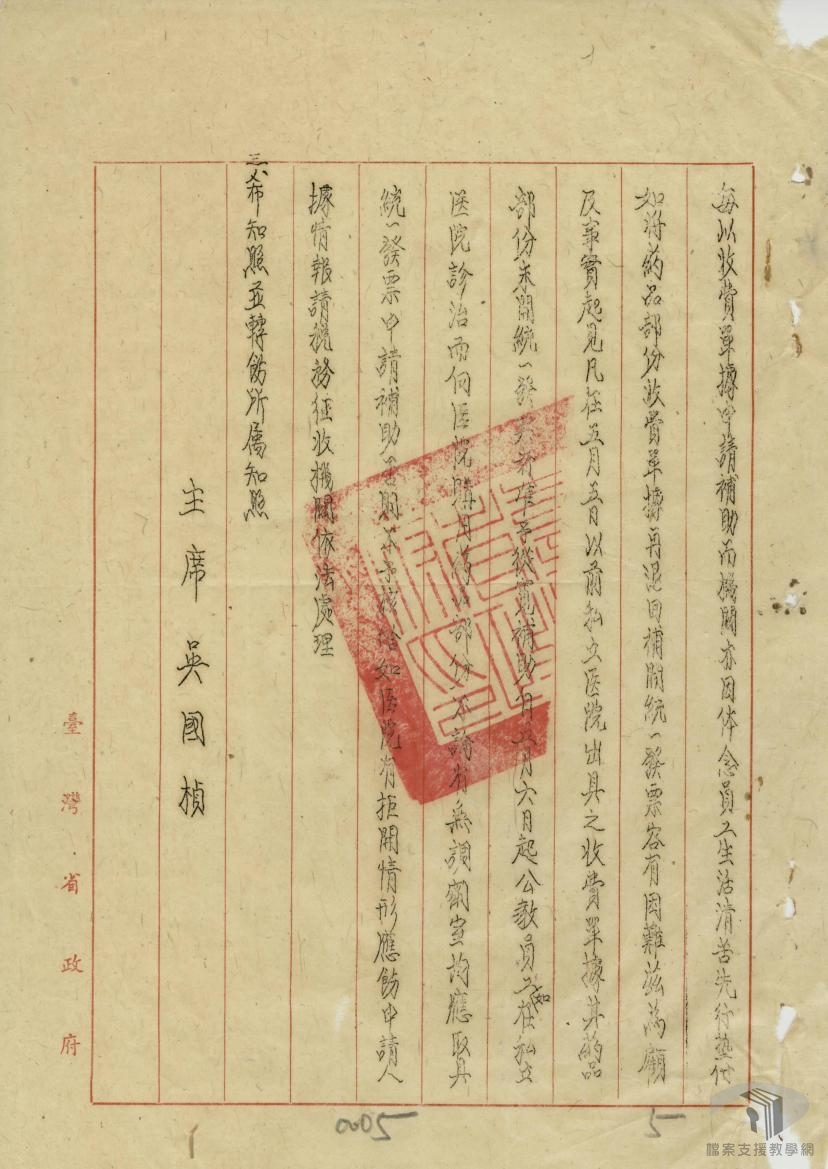 每以收費單據申請補助而機關亦因体念員工生活清苦先行墊付
如將葯品部份收費單據再退回補開統一發票容有困難茲為顧
及事實起見凡在五月五日以前私立医院出具之收費單據其葯品
部份未開統一發票者准予從寬補助自五月六日起公教員工如在私立
医院診治而向医院購用葯品部份不論有無調劑室均應取具
統一發票申請補助否則不予核給如医院有拒開情形應飭申請人
據情報請稅務征收機關依法處理
三、希知照並轉飭所属知照
主席吳國楨
臺灣省政府
0005
5
檔案支援教學網